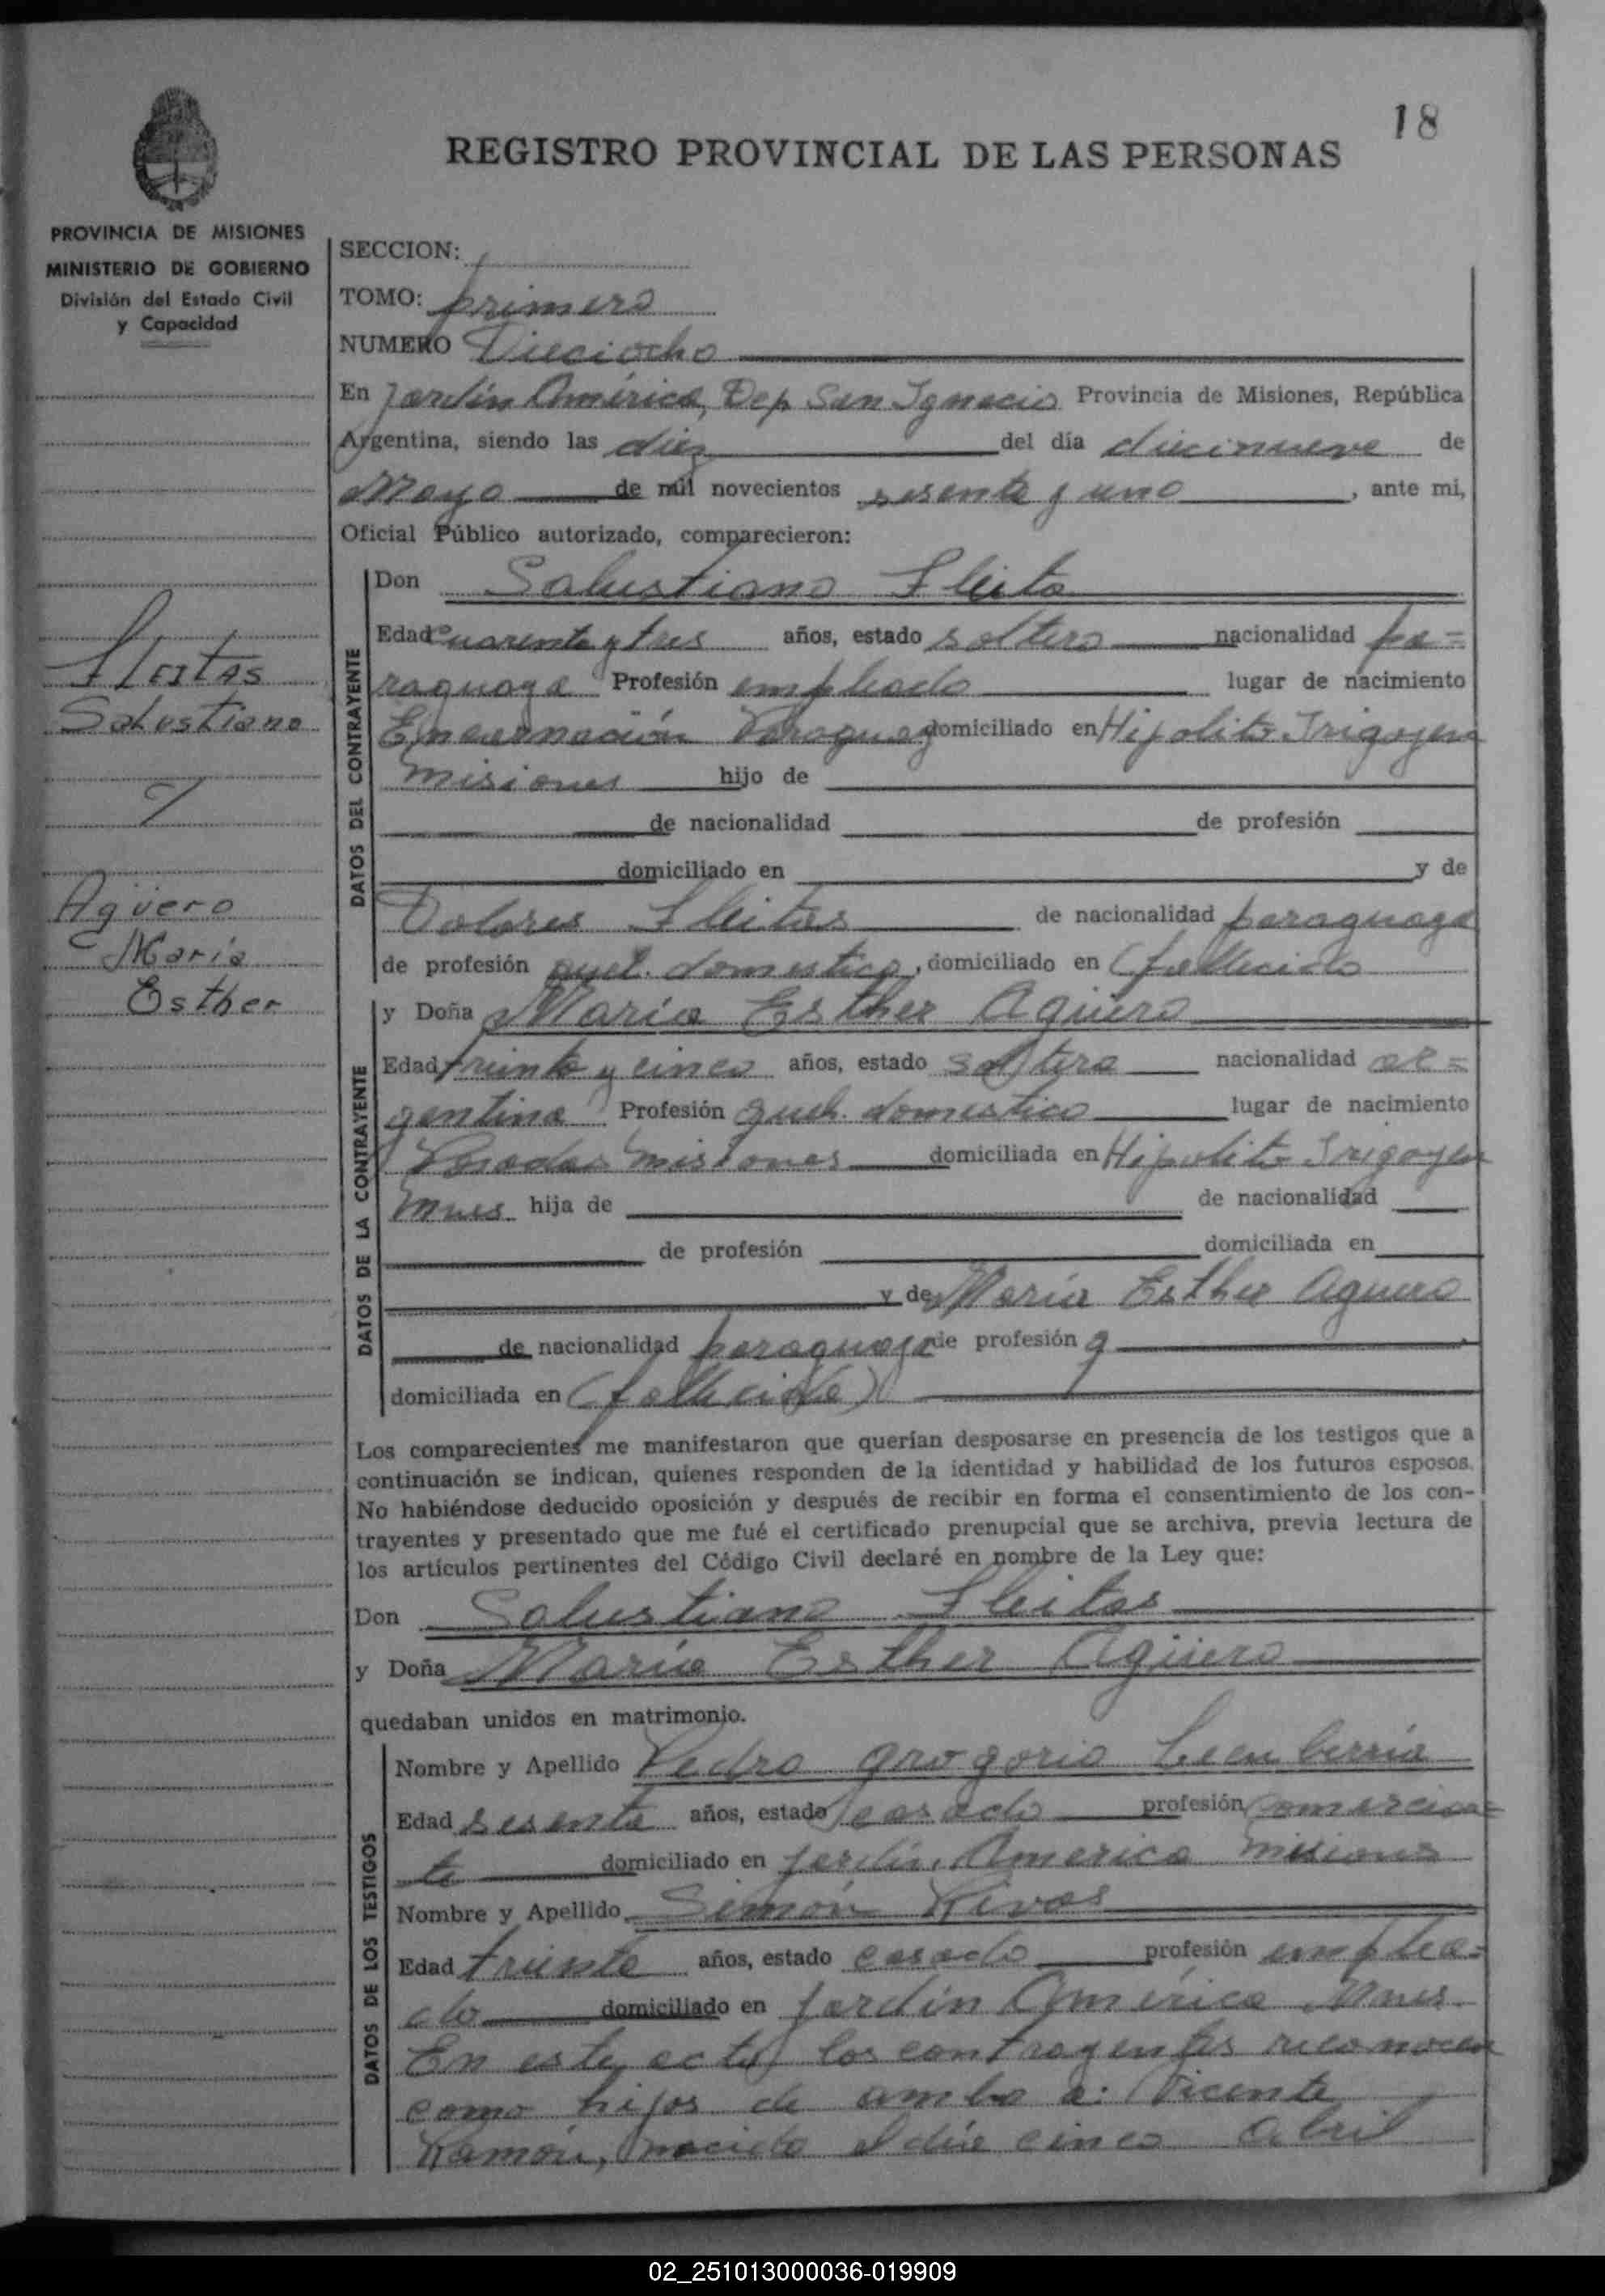 18
REGISTRO PROVINCIAL DE LAS PERSONAS
PROVINCIA DE MISIONES
MINISTERIO DE GOBIERNO
División del Estado Civil
y Capacidad
SECCION:
TOMO: primero
NUMERO Dieciocho
En Jardín América, Dep San Ignacio Provincia de Misiones, República
Argentina, siendo las diez del día diecinueve de
Mayo de mil novecientos sesenta y uno, ante mi,
Oficial Público autorizado, comparecieron:
Fleitas
Salustiano
Agüero
María
Esther
DATOS DEL CONTRAYENTE
Don Salustiano Fleita
Edad cuarenta y tres años, estado soltero nacionalidad pa=
raguaya Profesión empleado lugar de nacimiento
Encarnación Paraguay domiciliado en Hipolito Irigoyen
misiones hijo de
de nacionalidad de profesión
domiciliado en y de
Dolores Fleitas de nacionalidad paraguaya
de profesión quel. domestico, domiciliado en (fallecido
DATOS DE LA CONTRAYENTE
y Doña María Esther Agüero
Edad treinta y cinco años, estado soltera nacionalidad ar=
gentina Profesión queh. domestico lugar de nacimiento
Posadas misiones domiciliada en Hipolito Irigoyen
Mnes hija de de nacionalidad
de profesión domiciliada en
y de María Esther Aguero
de nacionalidad paraguaya de profesión q
domiciliada en (fallecida)
Los comparecientes me manifestaron que querían desposarse en presencia de los testigos que a
continuación se indican, quienes responden de la identidad y habilidad de los futuros esposos.
No habiéndose deducido oposición y después de recibir en forma el consentimiento de los con-
trayentes y presentado que me fué el certificado prenupcial que se archiva, previa lectura de
los artículos pertinentes del Código Civil declaré en nombre de la Ley que:
Don Salustiano Fleitas
y Doña María Esther Agüero
quedaban unidos en matrimonio.
DATOS DE LOS TESTIGOS
Nombre y Apellido Pedro Grogorio
Edad sesenta años, estado casado profesión comercian=
te domiciliado en Jardín America misiones
Nombre y Apellido Simón Rivas
Edad treinta años, estado casado profesión emplea=
do domiciliado en Jardín América Mnes.
En este acto los contrayentes reconocen
como hijos de ambo a: Vicente
Ramón, nacido el día cinco Abril
02_251013000036-019909